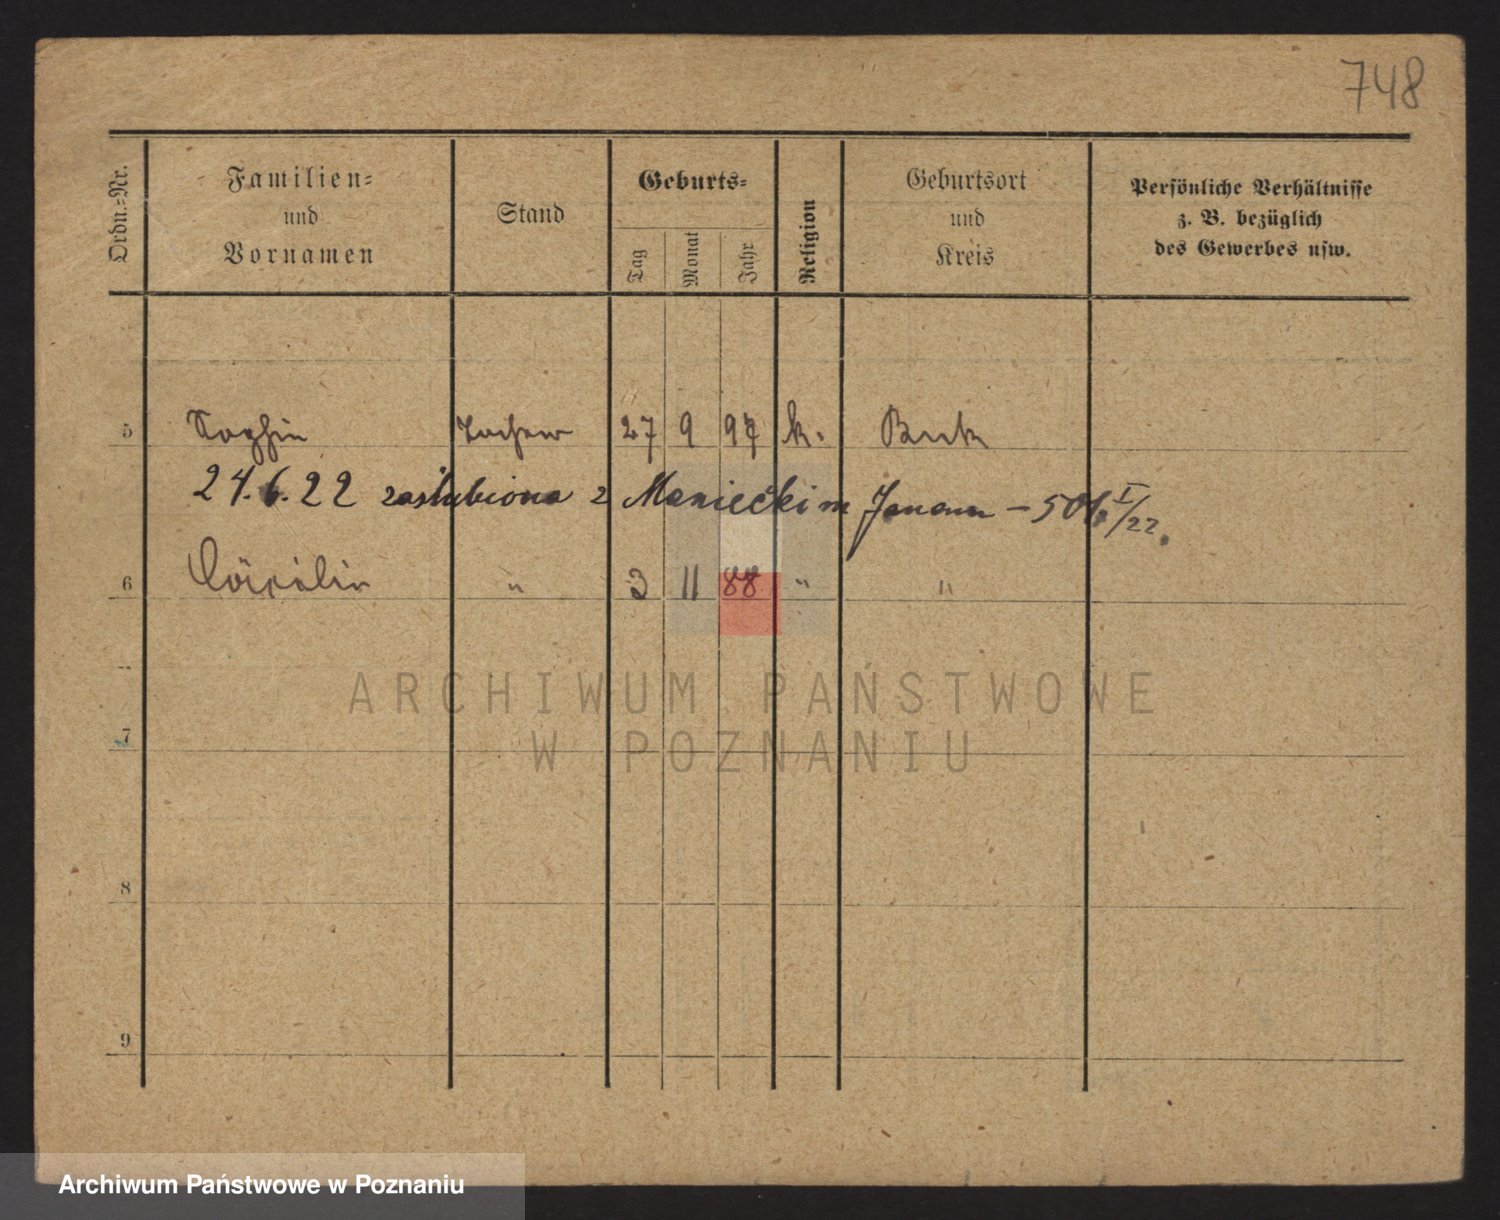 748
Ordn.=Nr.
Familien=
und
Vornamen
Stand
Geburts=
Tag
Monat
Jahr
Religion
Geburtsort
und
Kreis
Persönliche Verhältnisse
z. B. bezüglich
des Gewerbes usw.
5 Sophie Tochter 27 9 97 k. Buk
24.6.22 zaślubiona z Maniećkim Janem – 506 I/22.
6 " 3 11 88 " "
7
8
9
ARCHIWUM PAŃSTWOWE
W POZNANIU
Archiwum Państwowe w Poznaniu